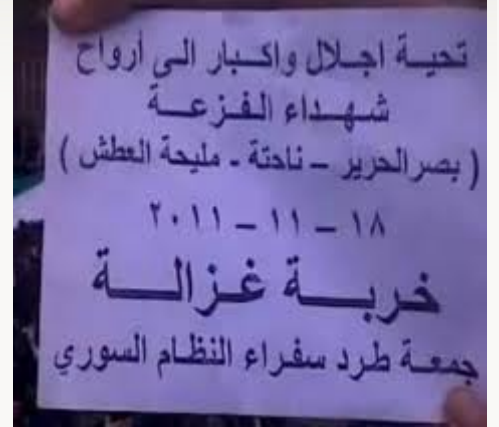 تحية اجلال واكبار الى أرواح
شهداء الفزعة
( بصرالحرير – ناحتة - مليحة العطش )
١٨ – ١١ – ٢٠١١
خربة غزالة
جمعة طرد سفراء النظام السوري